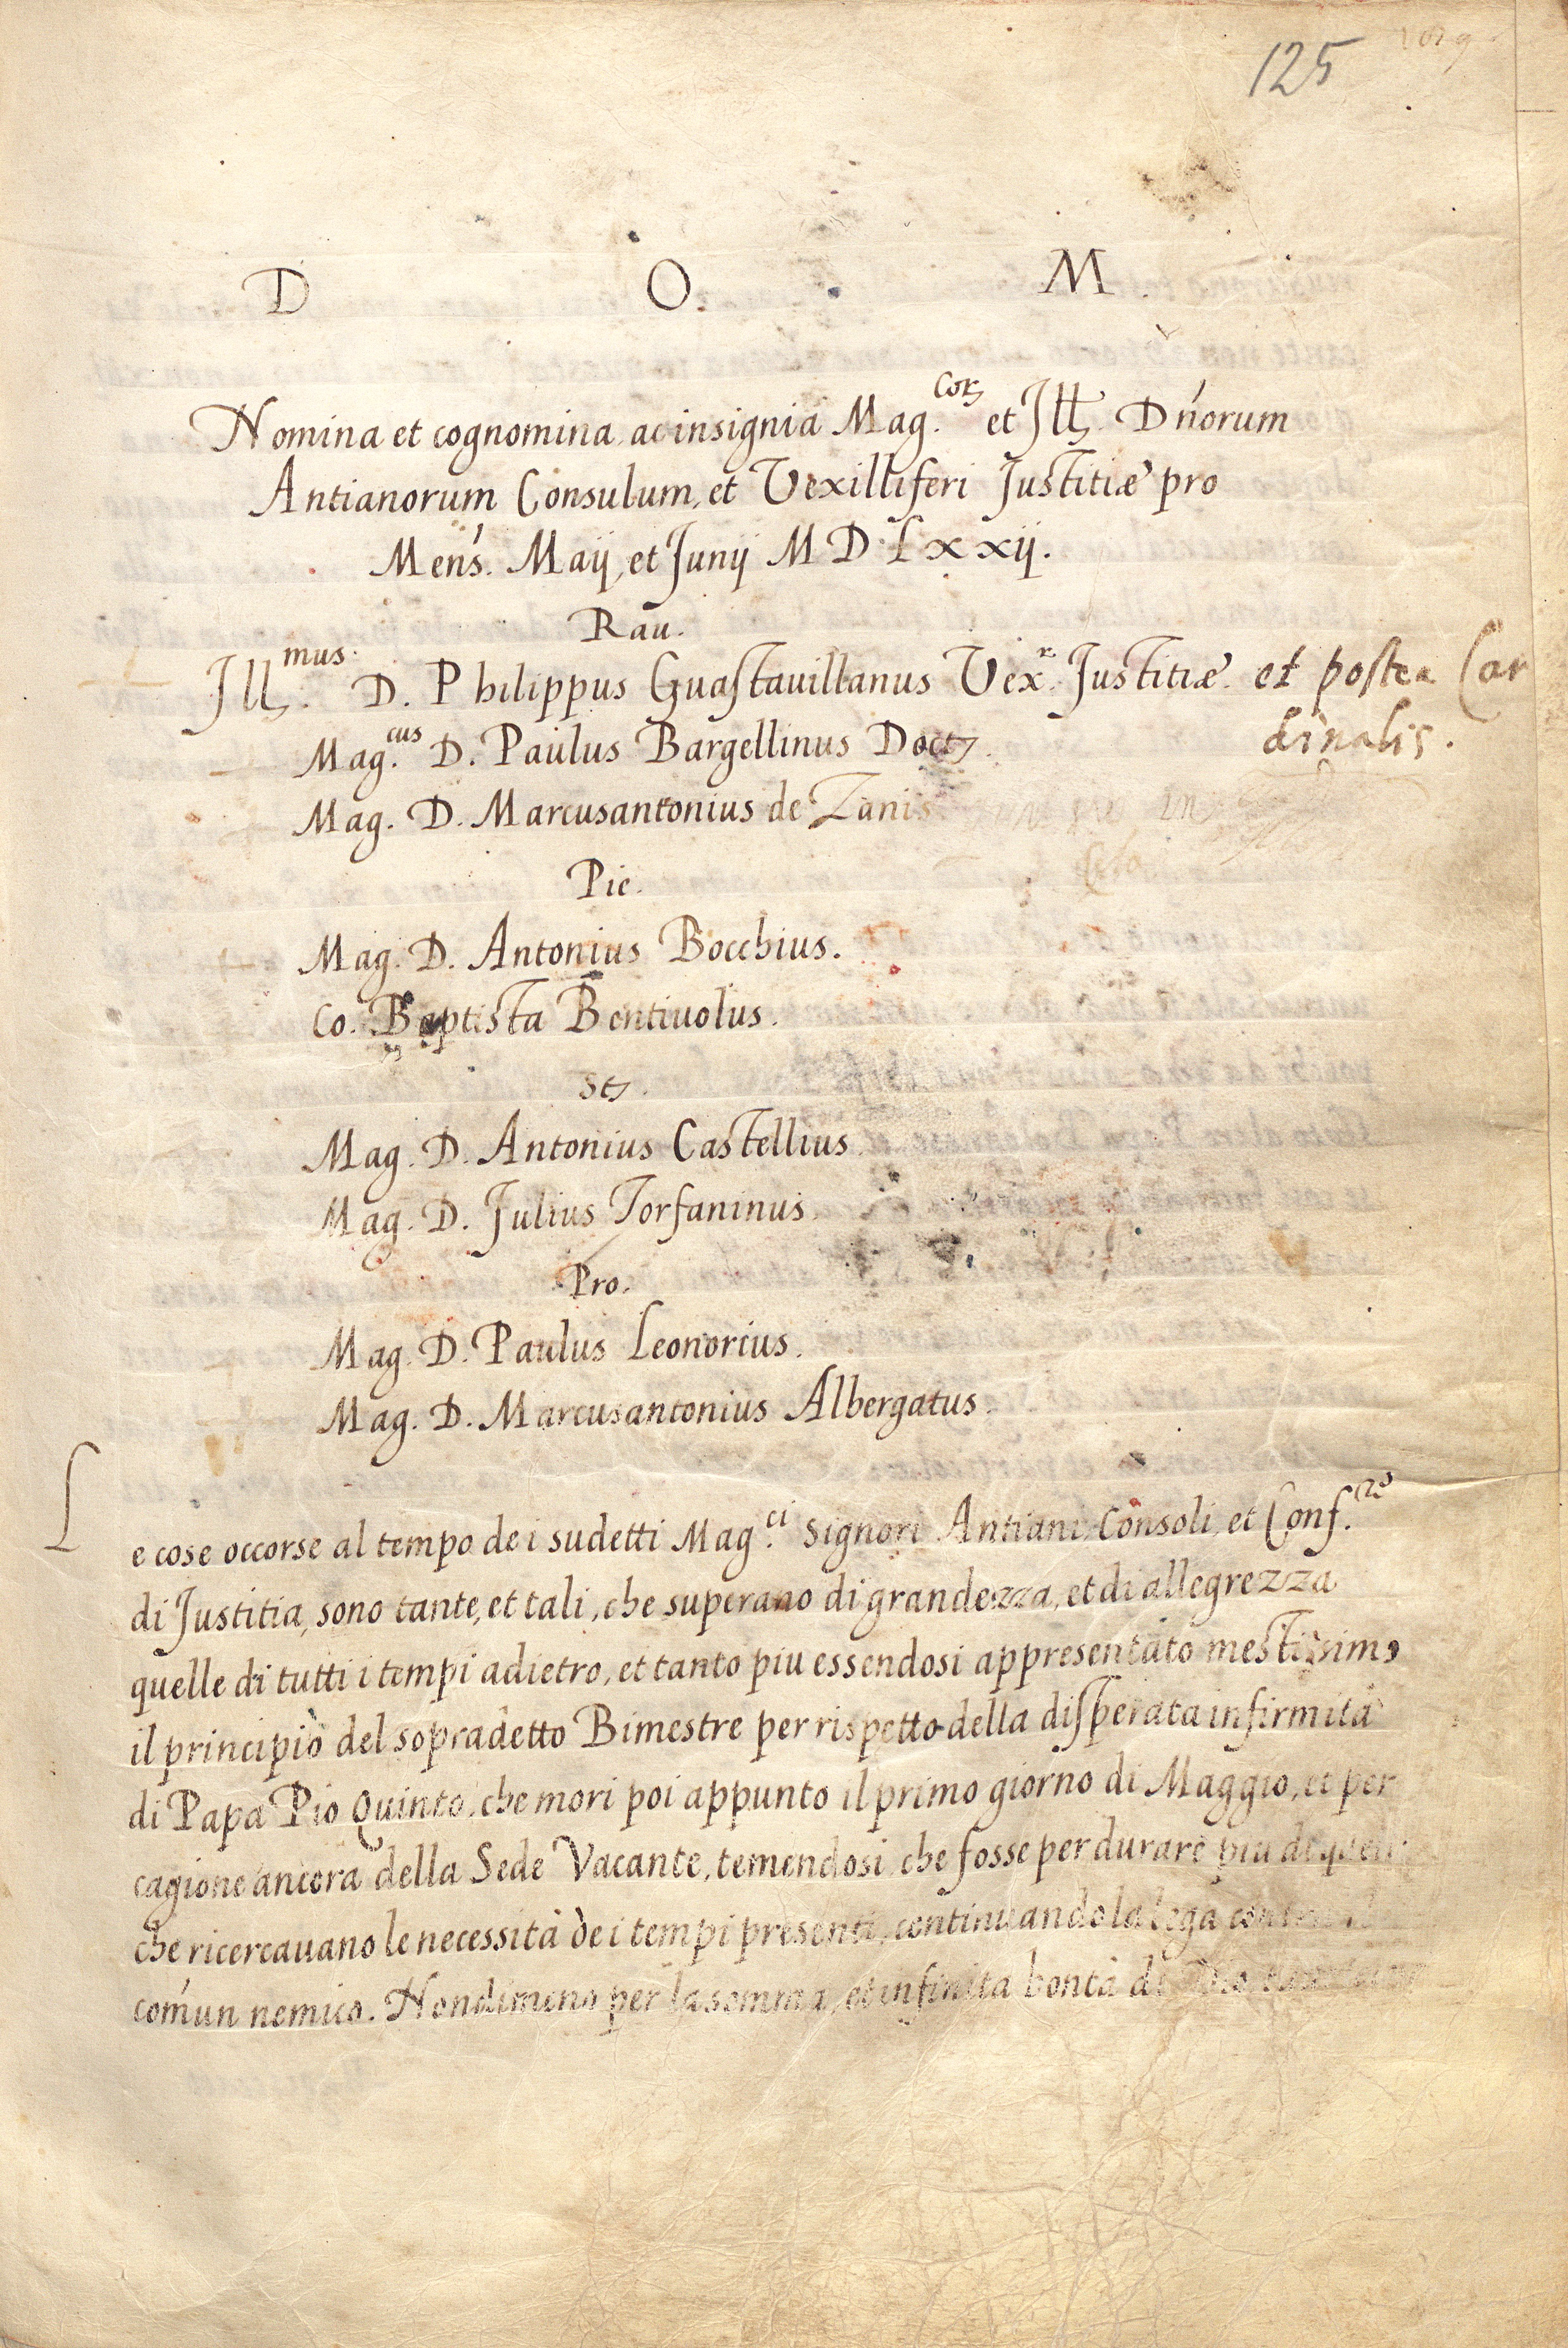 125
D O. M.
Nomina et cognomina, ac insignia Mag.corꝫ et Illꝫ. Dńorum
Antianorum Consulum, et Vexilliferi Justitiæ pro
Meńs. Maij, et Junij M D L x xij.
Rau.
Illꝫ.mus. D. Philippus Guastauillanus Vex.r Justitiæ. et postea Car
dinalis.
Mag.cus D. Paulus Bargellinus Doctꝫ.
Mag. D. Marcusantonius de Zanis
Pie.
Mag. D. Antonius Bocchius.
Co. Baptista Bentiuolus.
Stꝫ.
Mag. D. Antonius Castellius
Mag. D. Julius Torfaninus.
Pro.
Mag. D. Paulus Leonorius.
Mag. D. Marcusantonius Albergatus.
Le cose occorse al tempo de i sudetti Mag.ci Signori Antiani Consoli, et Conf.re
di Justitia, sono tante, et tali, che superano di grandezza, et di allegrezza
quelle di tutti i tempi adietro, et tanto piu essendosi appresentato mestissimo
il principio del sopradetto Bimestre per rispetto della disperata infirmità
di Papa Pio Quinto, che mori poi appunto il primo giorno di Maggio, et per
cagione ancora della Sede Vacante, temendosi, che fosse per durare piu di
che ricercauano le necessità de i tempi presenti, continuando la lega
comun nemico. Nondimeno per la somma, et infinita bontà di Dio